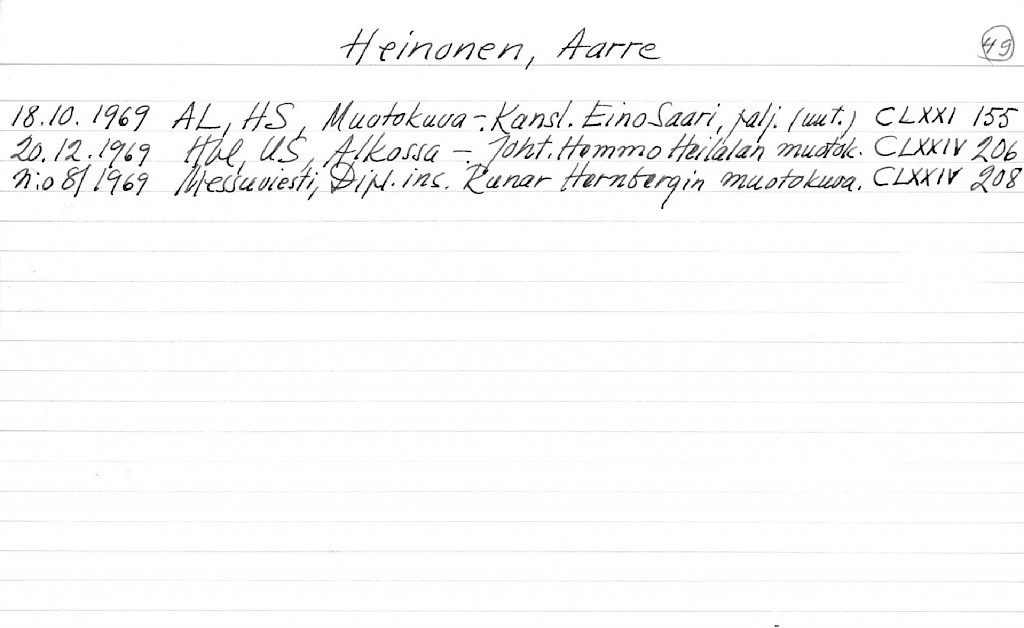 Heinonen, Aarre
49
18.10.1969 AL, HS, Muotokuva - Kansl. Eino Saari, palj. (uut.) CLXXI 155
20.12.1969 Hbl, US, Alkossa - Joht. Hemmo Heilalan muotok. CLXXIV 206
N:o 8/1969 Messuviesti, Dipl. ins. Runar Hernbergin muotokuva. CLXXIV 208